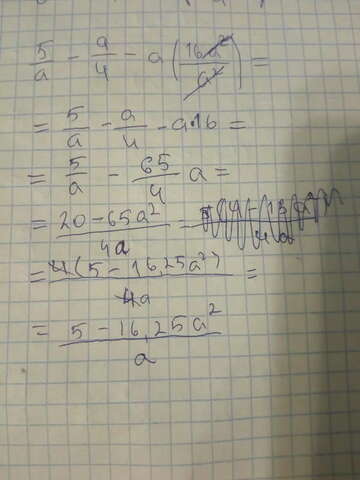 5/a - a/4 - a(16a²/a²) =
= 5/a - a/4 - a·16 =
= 5/a - 65/4 a =
= 20-65a²/4a =
= 4(5-16,25a²)/4a =
= 5-16,25a²/a